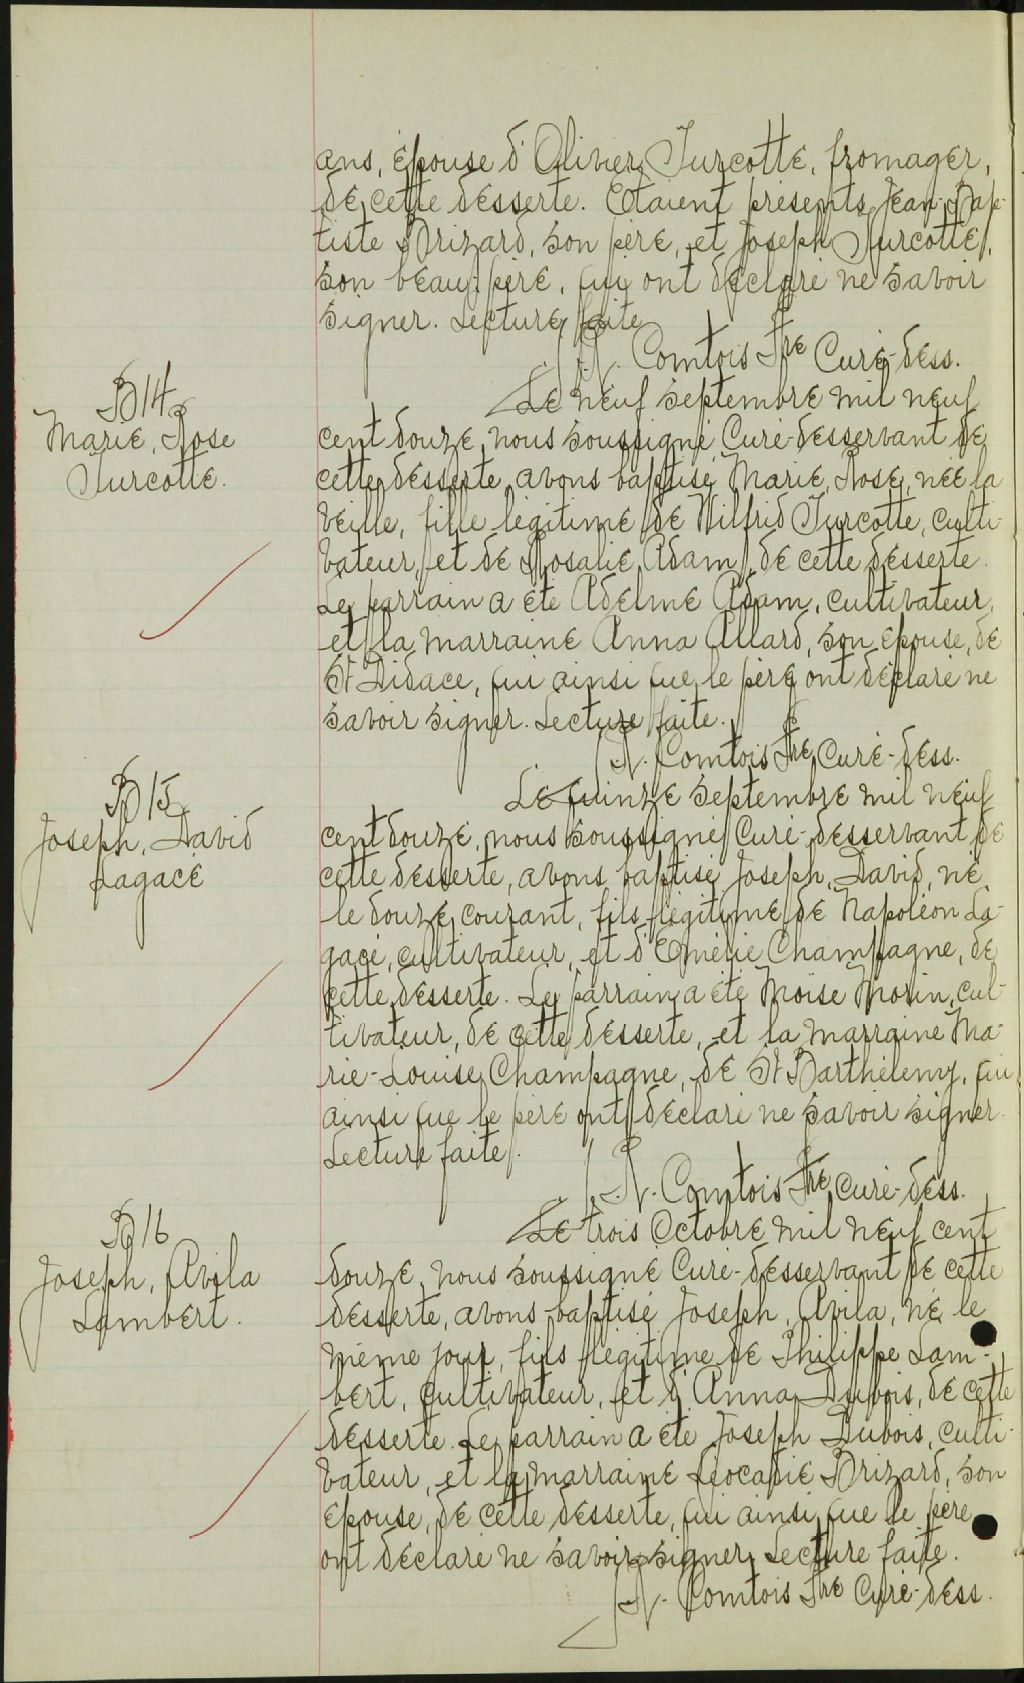 ans, épouse d'Olivier Turcotte, fromager,
de cette desserte. Etaient présents Jean-Bap-
tiste Brizard, son père, et Joseph Turcotte,
son beau-père, qui ont déclaré ne savoir
signer. Lecture faite
N. Comtois Ptre Curé-dess.
B 14
Marie, Rose
Turcotte.
Le neuf septembre mil neuf
cent douze, nous soussigné Curé-desservant de
cette desserte, avons baptisé Marie, Rose, née la
veille, fille légitime de Wilfrid Turcotte, culti-
vateur, et de Rosalie Adam, de cette desserte.
Le parrain a été Adelme Adam, cultivateur,
et la marraine Anna Allard, son épouse, de
St Didace, qui ainsi que le père ont déclaré ne
savoir signer. Lecture faite.
N. Comtois Ptre Curé-dess.
B 15
Joseph, David
Lagacé
Le quinze septembre mil neuf
cent douze, nous soussigné Curé-desservant de
cette desserte, avons baptisé Joseph, David, né
le douze courant, fils légitime de Napoléon La-
gacé, cultivateur, et d'Emérie Champagne, de
cette desserte. Le parrain a été Moïse Morin, cul-
tivateur, de cette desserte, et la marraine Ma-
rie-Louise Champagne, de St Barthélemy, qui
ainsi que le père ont déclaré ne savoir signer.
Lecture faite.
N. Comtois Ptre curé-dess.
B 16
Joseph, Avila
Lambert.
Le trois Octobre mil neuf cent
douze, nous soussigné Curé-desservant de cette
desserte, avons baptisé Joseph, Avila, né le
même jour, fils légitime de Philippe Lam-
bert, cultivateur, et d'Anna Dubois, de cette
desserte. Le parrain a été Joseph Dubois, culti-
vateur, et la marraine Léocadie Brizard, son
épouse, de cette desserte, qui ainsi que le père
ont déclaré ne savoir signer. Lecture faite.
N. Comtois Ptre Curé-dess.